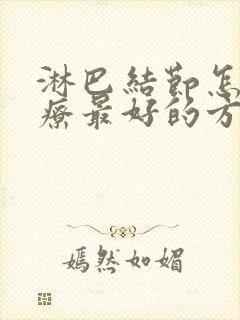 淋巴結節怎
療最好的方
嫣然如媚